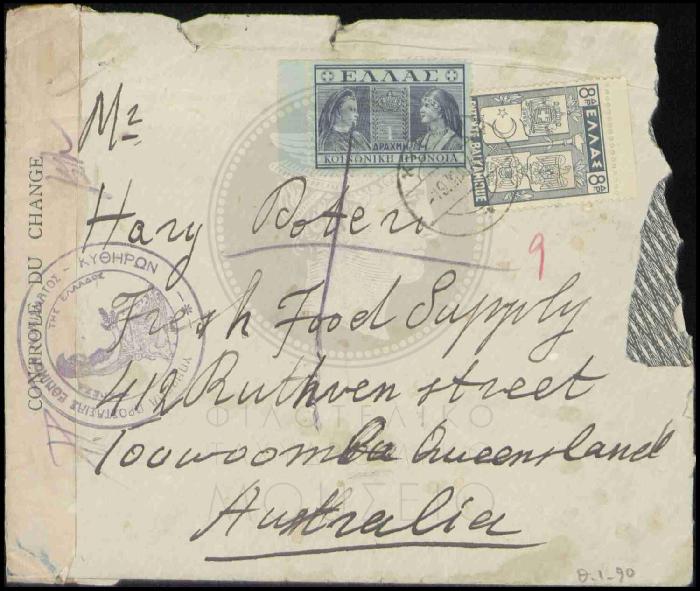 ΕΛΛΑΣ
1
ΔΡΑΧΜΗ
ΚΟΙΝΩΝΙΚΗ ΠΡΟΝΟΙΑ
8 ΔΡ. ΕΛΛΑΣ 8 ΔΡ.
Mr
Hary
9
Fresh Food Supply
412 Ruthven street
Toowoomba Queensland
Australia
CONTROLE DU CHANGE
ΚΥΘΗΡΩΝ
ΤΗΣ ΕΛΛΑΔΟΣ
ΠΡΟΣΤΑΣΙΑΣ ΕΘΝΙΚΟΥ
ΦΙΛΟΤΕΛΙΚΟ
ΜΟΥΣΕΙΟ
Θ.1-90